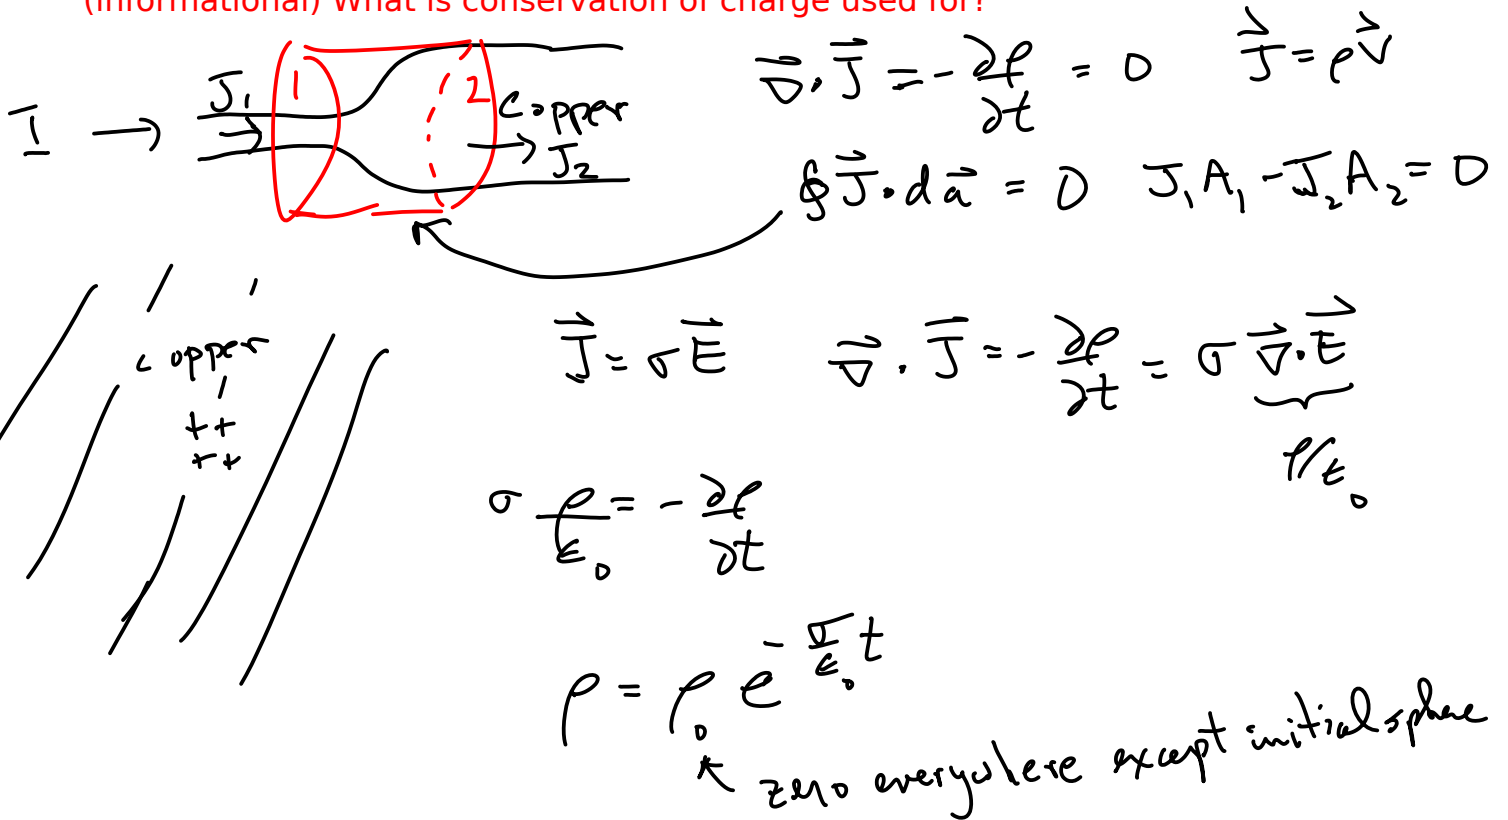 (informational) What is conservation of charge used for?
I → J₁ 1 2 copper J₂
∇⃗·J⃗ = -∂ρ/∂t = 0 J⃗ = ρv⃗
∮J⃗·da⃗ = 0 J₁A₁ - J₂A₂ = 0
copper
++
++
J⃗ = σE⃗ ∇⃗·J⃗ = -∂ρ/∂t = σ∇⃗·E⃗
ρ/ε₀
σ ρ/ε₀ = -∂ρ/∂t
ρ = ρ₀ e^(-σ/ε₀ t)
zero everywhere except initial sphere